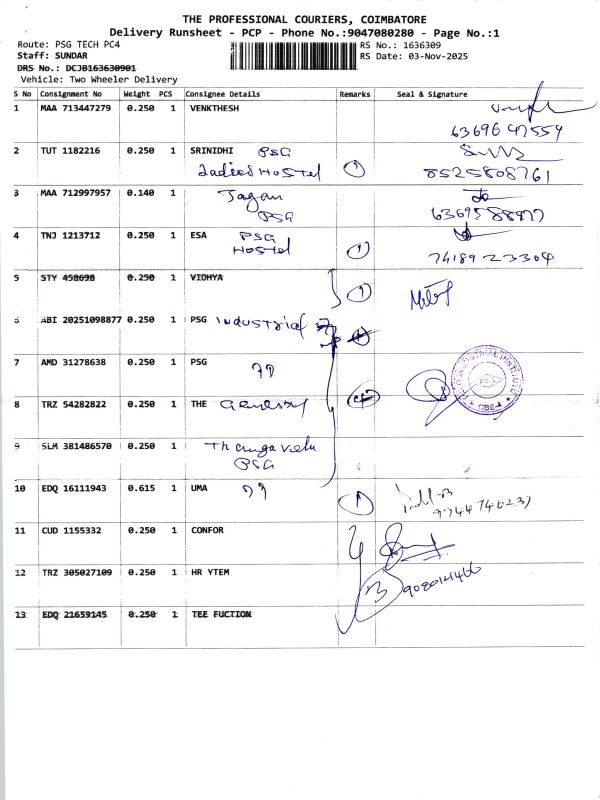 THE PROFESSIONAL COURIERS, COIMBATORE
Delivery Runsheet - PCP - Phone No.:9047080280 - Page No.:1
Route: PSG TECH PC4 RS No.: 1636309
Staff: SUNDAR RS Date: 03-Nov-2025
DRS No.: DCJB163630901
Vehicle: Two Wheeler Delivery
S No Consignment No Weight PCS Consignee Details Remarks Seal & Signature
1 MAA 713447279 0.250 1 VENKTHESH
6369647554
2 TUT 1182216 0.250 1 SRINIDHI PSG
Ladies Hostel 1 8525808761
3 MAA 712997957 0.140 1 Jagan
PSG
4 TNJ 1213712 0.250 1 ESA PSG
Hostel 1 7418923304
5 STY 458698 0.250 1 VIDHYA 1
6 ABI 20251098877 0.250 1 PSG Industrial
7 AMD 31278638 1 0.250 1 PSG
8 TRZ 54282822 0.250 1 THE General
9 SLM 381486570 0.250 1 Thangavelu
PSG
10 EDQ 16111943 0.615 1 UMA 1
11 CUD 1155332 0.250 1 CONFOR
12 TRZ 305027109 0.250 1 HR YTEM 3
13 EDQ 21659145 0.250 1 TEE FUCTION